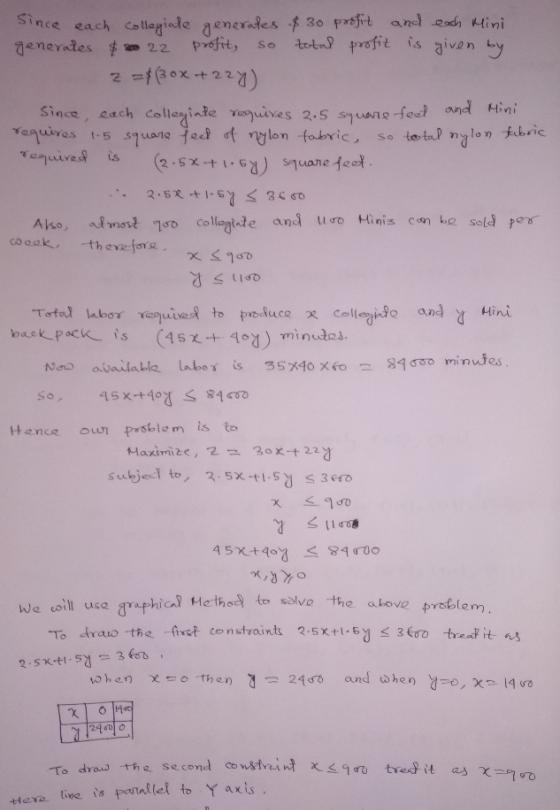 Since each collegiate generates $ 30 profit and each Mini
generates $ 22 profit, so total profit is given by
z = $(30x + 22y)
Since, each collegiate requires 2.5 square feet and Mini
requires 1.5 square feet of nylon fabric, so total nylon fabric
required is (2.5x + 1.5y) square feet.
∴ 2.5x + 1.5y ≤ 3600
Also, atmost 900 collegiate and 1100 Minis can be sold per
week, therefore.
x ≤ 900
y ≤ 1100
Total labor required to produce x collegiate and y Mini
back pack is (45x + 40y) minutes.
Now available labor is 35×40×60 = 84000 minutes.
so, 45x+40y ≤ 84000
Hence our problem is to
Maximize, z = 30x+22y
subject to, 2.5x+1.5y ≤ 3600
x ≤ 900
y ≤ 1100
45x+40y ≤ 84000
x,y ≥ 0
We will use graphical Method to solve the above problem.
To draw the first constraints 2.5x+1.5y ≤ 3600 treat it as
2.5x+1.5y = 3600.
When x=0 then y = 2400 and when y=0, x=1400
x 0 1400
y 2400 0
To draw the second constraint x≤900 treat it as x=900
Here line is parallel to Y axis.